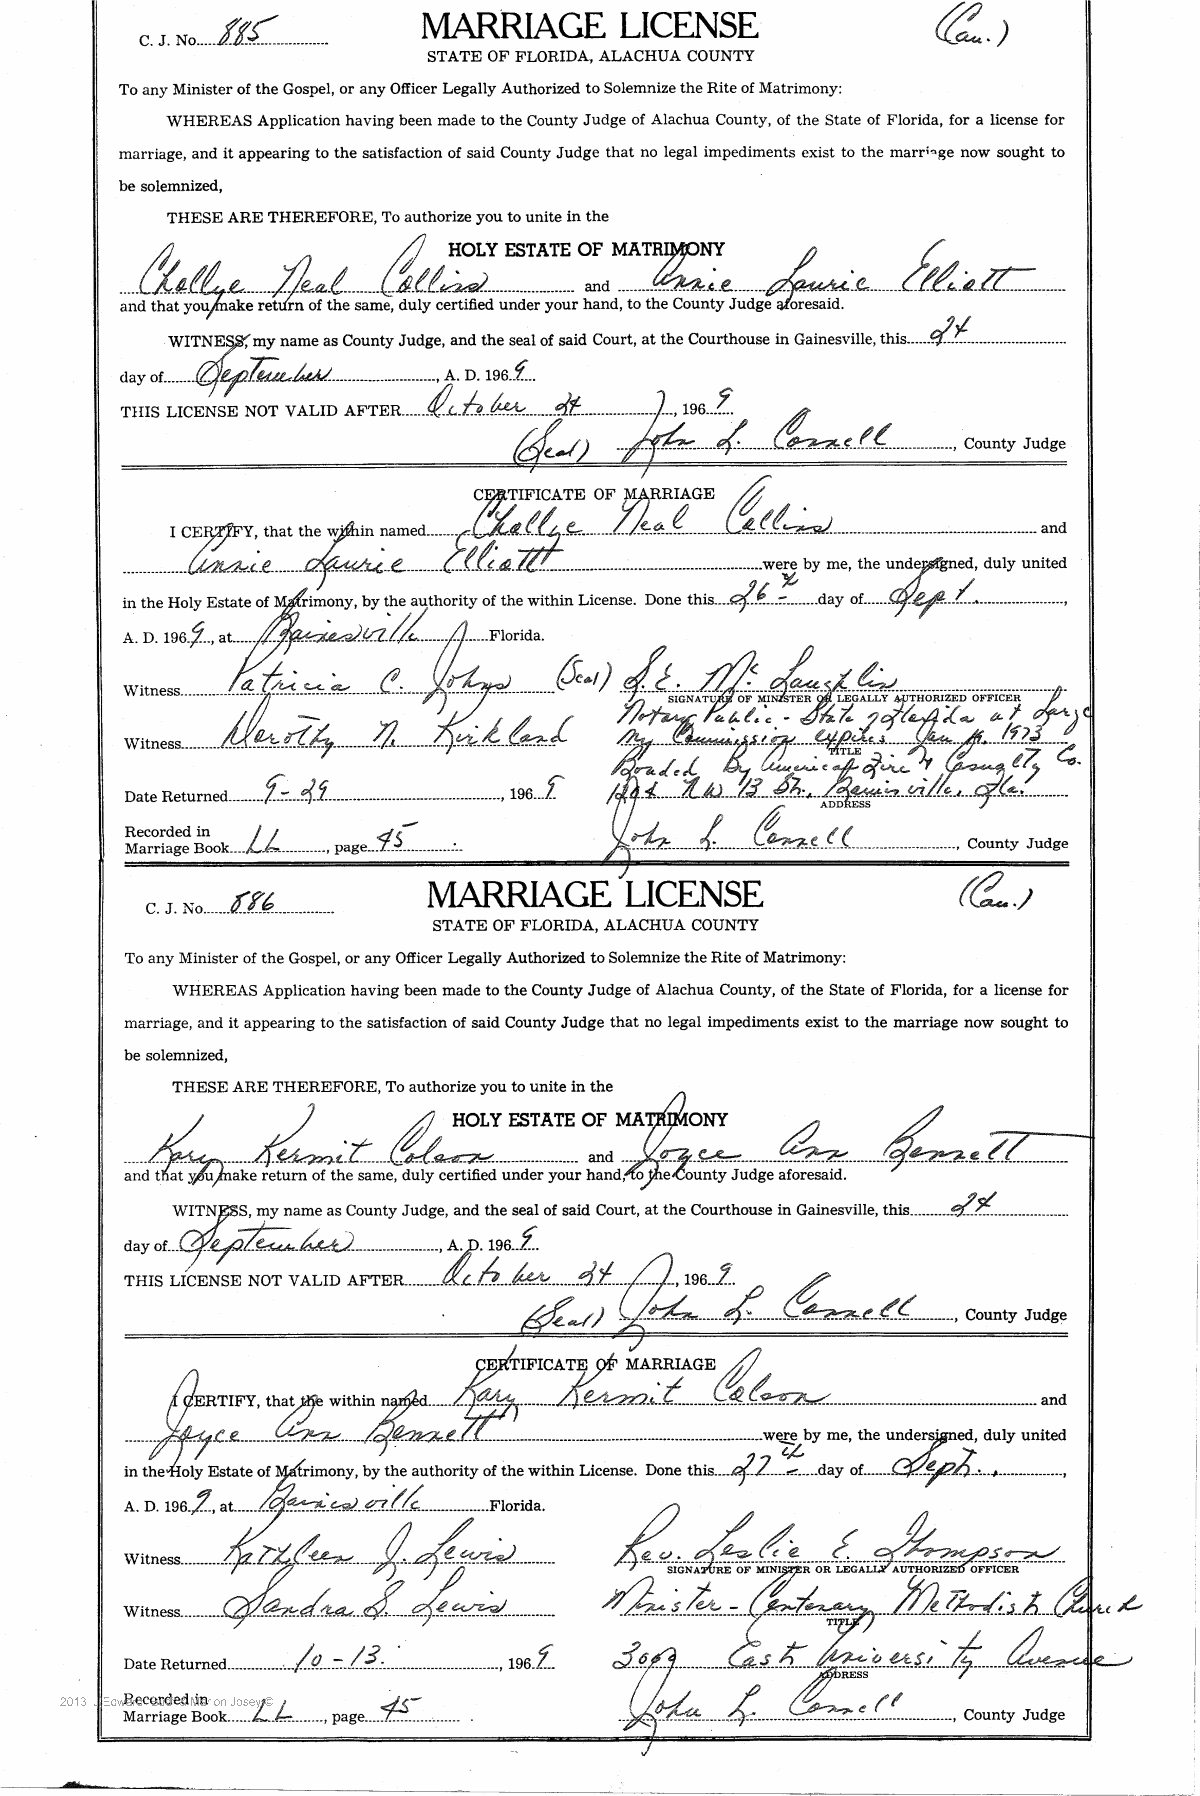 C. J. No. 885 MARRIAGE LICENSE (Cau.)
STATE OF FLORIDA, ALACHUA COUNTY
To any Minister of the Gospel, or any Officer Legally Authorized to Solemnize the Rite of Matrimony:
WHEREAS Application having been made to the County Judge of Alachua County, of the State of Florida, for a license for
marriage, and it appearing to the satisfaction of said County Judge that no legal impediments exist to the marriage now sought to
be solemnized,
THESE ARE THEREFORE, To authorize you to unite in the
HOLY ESTATE OF MATRIMONY
Challye Neal Collins and Annie Laurie Elliott
and that you make return of the same, duly certified under your hand, to the County Judge aforesaid.
WITNESS, my name as County Judge, and the seal of said Court, at the Courthouse in Gainesville, this 24
day of September, A. D. 1969
THIS LICENSE NOT VALID AFTER October 24, 1969
(Seal) John L. Connell, County Judge
CERTIFICATE OF MARRIAGE
I CERTIFY, that the within named Challye Neal Collins and
Annie Laurie Elliott were by me, the undersigned, duly united
in the Holy Estate of Matrimony, by the authority of the within License. Done this 26th day of Sept.,
A. D. 1969, at Gainesville Florida.
Witness Patricia C. Johns (Seal) S. E. McLaughlin
SIGNATURE OF MINISTER OR LEGALLY AUTHORIZED OFFICER
Notary Public - State of Florida at Large
Witness Dorothy N. Kirkland My Commission expires Jan 1973
TITLE
Bonded By American Fire & Casualty Co.
Date Returned 9-29, 1969 NW 13 St., Gainesville, Fla.
ADDRESS
Recorded in
Marriage Book LL, page 45 John L. Connell, County Judge
C. J. No. 886 MARRIAGE LICENSE (Cau.)
STATE OF FLORIDA, ALACHUA COUNTY
To any Minister of the Gospel, or any Officer Legally Authorized to Solemnize the Rite of Matrimony:
WHEREAS Application having been made to the County Judge of Alachua County, of the State of Florida, for a license for
marriage, and it appearing to the satisfaction of said County Judge that no legal impediments exist to the marriage now sought to
be solemnized,
THESE ARE THEREFORE, To authorize you to unite in the
HOLY ESTATE OF MATRIMONY
Kary Kermit Colson and Joyce Ann Bennett
and that you make return of the same, duly certified under your hand, to the County Judge aforesaid.
WITNESS, my name as County Judge, and the seal of said Court, at the Courthouse in Gainesville, this 24
day of September, A. D. 1969
THIS LICENSE NOT VALID AFTER October 24, 1969
(Seal) John L. Connell, County Judge
CERTIFICATE OF MARRIAGE
I CERTIFY, that the within named Kary Kermit Colson and
Joyce Ann Bennett were by me, the undersigned, duly united
in the Holy Estate of Matrimony, by the authority of the within License. Done this 27th day of Sept.,
A. D. 1969, at Gainesville Florida.
Witness Kathleen J. Lewis Rev. Leslie E. Thompson
SIGNATURE OF MINISTER OR LEGALLY AUTHORIZED OFFICER
Witness Sandra S. Lewis Minister - Centenary Methodist Church
TITLE
Date Returned 10-13, 1969 3069 East University Avenue
ADDRESS
Recorded in
Marriage Book LL, page 45 John L. Connell, County Judge